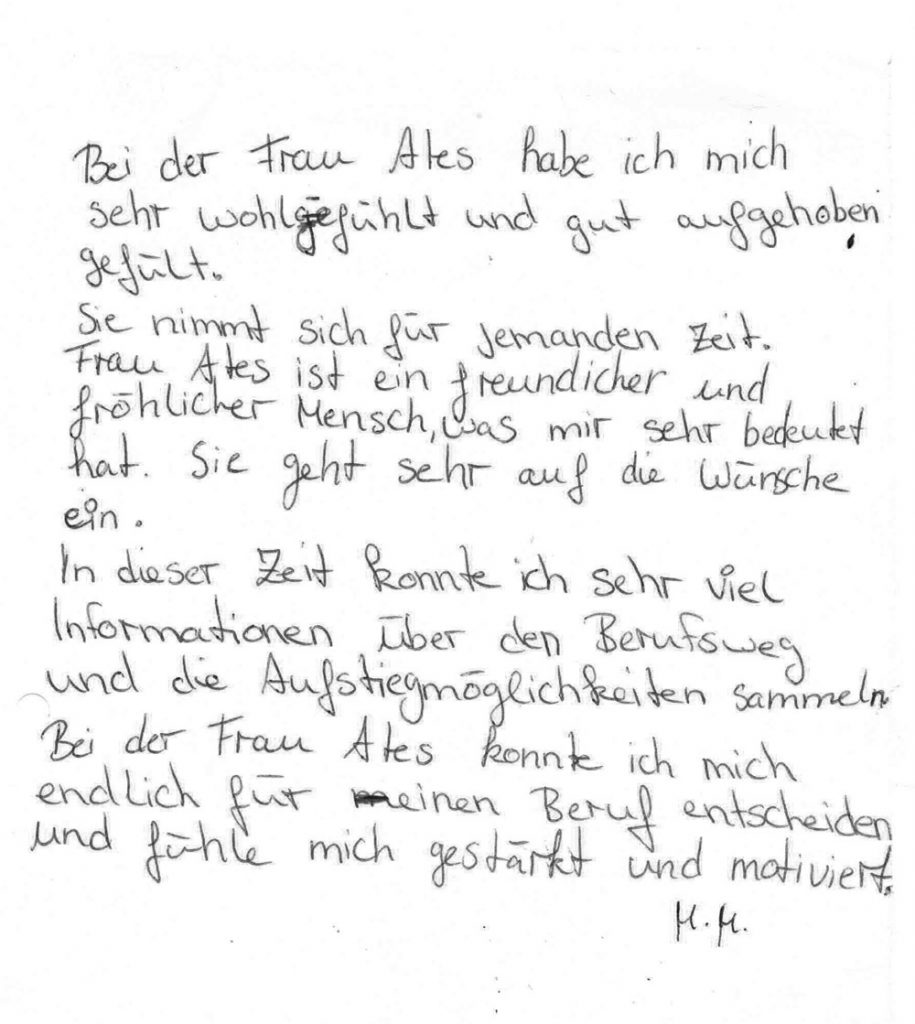 Bei der Frau Ates habe ich mich
sehr wohlgefühlt und gut aufgehoben
gefült.
Sie nimmt sich für jemanden Zeit.
Frau Ates ist ein freundicher und
fröhlicher Mensch, was mir sehr bedeutet
hat. Sie geht sehr auf die Wünsche
ein.
In dieser Zeit konnte ich sehr viel
Informationen über den Berufsweg
und die Aufstiegmöglichkeiten sammeln.
Bei der Frau Ates konnte ich mich
endlich für einen Beruf entscheiden
und fühle mich gestärkt und motiviert.
M.M.